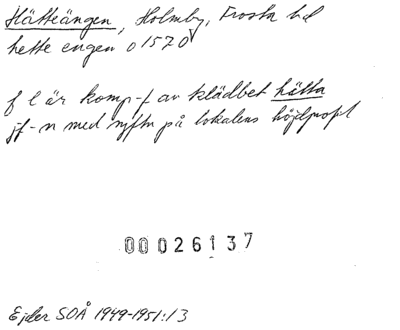 Hätteängen, Holmby, Frosta hd
hette engen o 1570
f l är komp-f av klädbet hätta
jf-n med syftn på lokalens höjdprofil
00026137
Ejder SOÅ 1949-1951:13